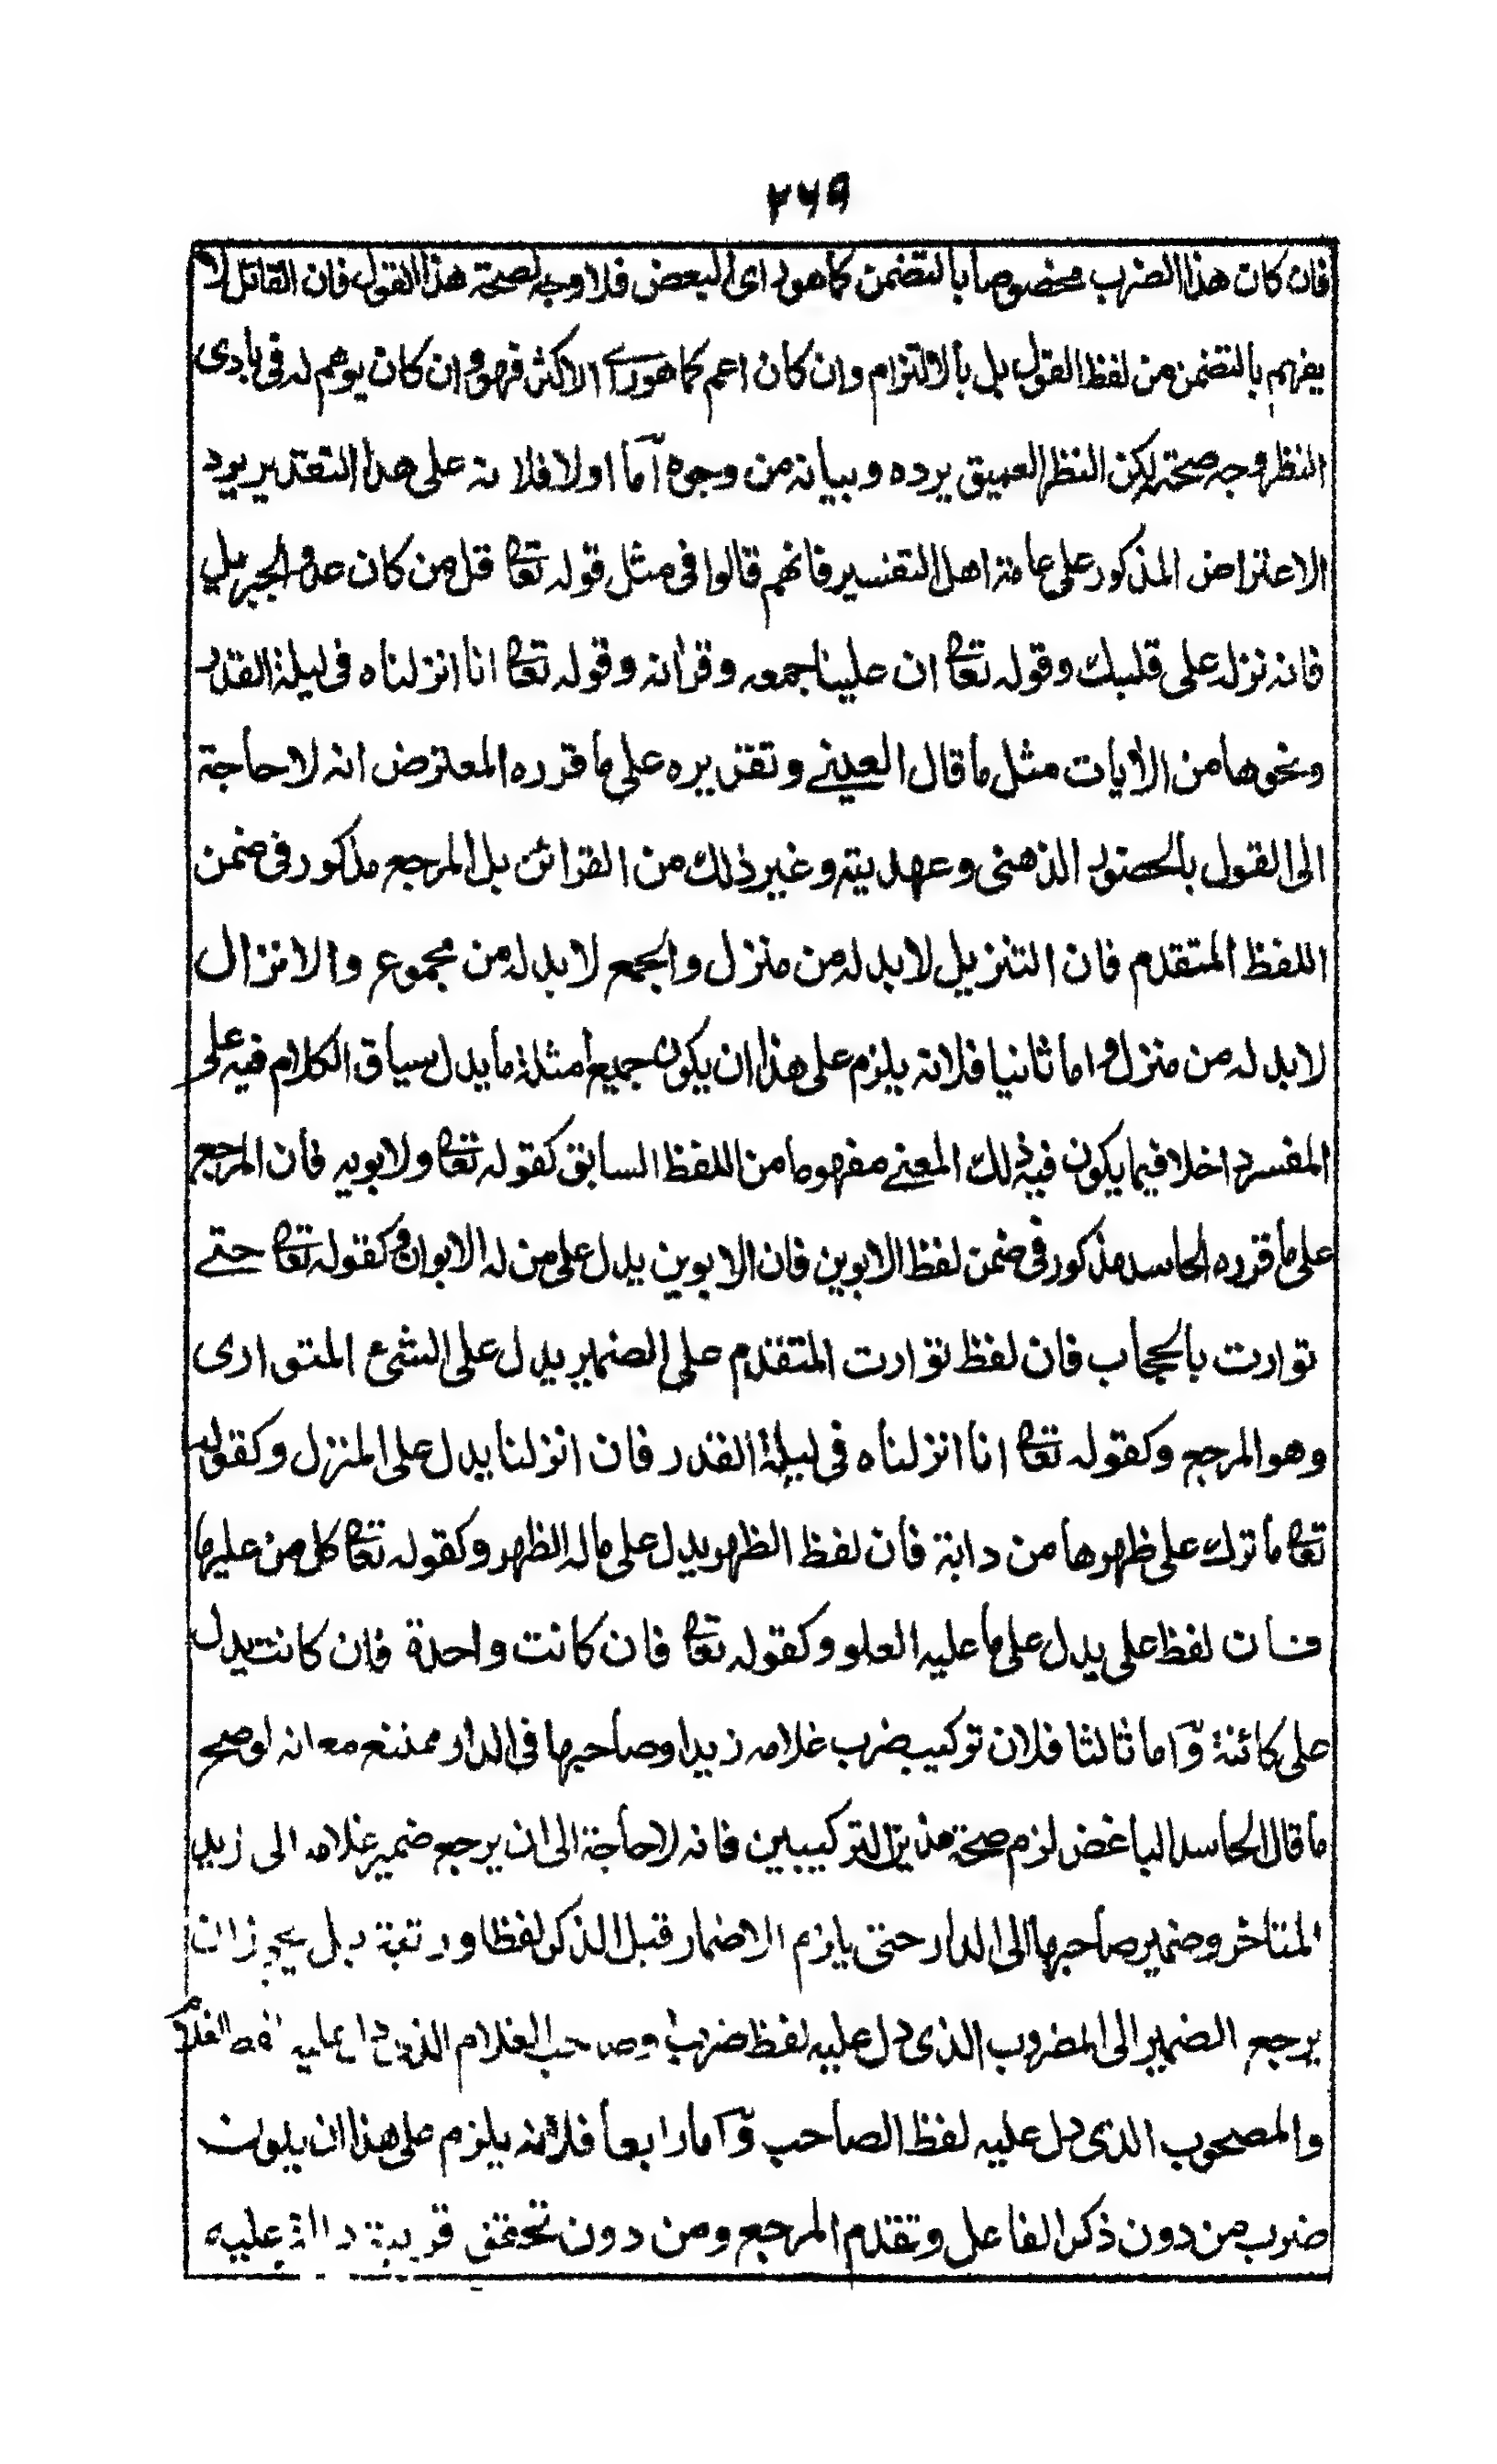 ٢٦٩
فان كان هذا الضرب مخصوصا بالتضمن كما هو راى البعض فلا وجه لصحة هذا القول فان القائل لا
يفهم بالتضمن من لفظ القول بل بالالتزام وان كان اعم كما هو راے الاكثر فهو وان كان يوهم له فى بادى
النظر وجه صحته لكن النظر العميق يرده وبيانه من وجوه آما اولا فلانه على هذا التقدير يرد
الاعتراض المذكور على عامة اهل التفسير فانهم قالوا فى مثل قوله تعا قل من كان عدوا لجبريل
فانه نزله على قلبك وقوله تعا ان علينا جمعه وقرانه وقوله تعا انا انزلناه فى ليلة القدر
ونحوها من الايات مثل ما قال العينے وتقريره على ما قرره المعترض انه لا حاجة
الى القول بالحضور الذهنى وعهديته وغير ذلك من القرائن بل المرجع مذكور فى ضمن
اللفظ المتقدم فان التنزيل لا بد له من منزل والجمع لا بد له من مجموع والانزال
لا بد له من منزل واما ثانيا فلانه يلزم على هذا ان يكون جميع امثلة ما يدل سياق الكلام فيه على
المفسر داخلا فيما يكون فيه ذلك المعنے مفهوما من اللفظ السابق كقوله تعا ولابويه فان المرجع
على ما قرره الحاسد مذكور فى ضمن لفظ الابوين فان الابوين يدل على من له الابوان وكقوله تعا حتے
توارت بالحجاب فان لفظ توارت المتقدم على الضمير يدل على الشئ المتوارى
وهو المرجع وكقوله تعا انا انزلناه فى ليلة القدر فان انزلنا يدل على المنزل وكقوله
تعا ما ترك على ظهرها من دابة فان لفظ الظهر يدل على ما له الظهر وكقوله تعا كل من عليها
فان لفظ على يدل على ما عليه العلو وكقوله تعا فان كانت واحدة فان كانت يدل
على كائنة وآما ثالثا فلان تركيب ضرب غلامه زيدا وصاحبها فى الدار ممتنع مع انه لو صح
ما قال الحاسد الباغض لزم صحة هذين التركيبين فانه لا حاجة الى ان يرجع ضمير غلامه الى زيد
المتاخر وضمير صاحبها الى الدار حتى يلزم الاضمار قبل الذكر لفظا ورتبة بل يجوز ان
يرجع الضمير الى المضروب الذى دل عليه لفظ ضرب وصاحب الغلام الذى دل عليه لفظ الغلام
والمصحوب الذى دل عليه لفظ الصاحب وآما رابعا فلانه يلزم على هذا ان يكون
ضرب من دون ذكر الفاعل وتقدم المرجع ومن دون تحقق قرينة دالة عليه